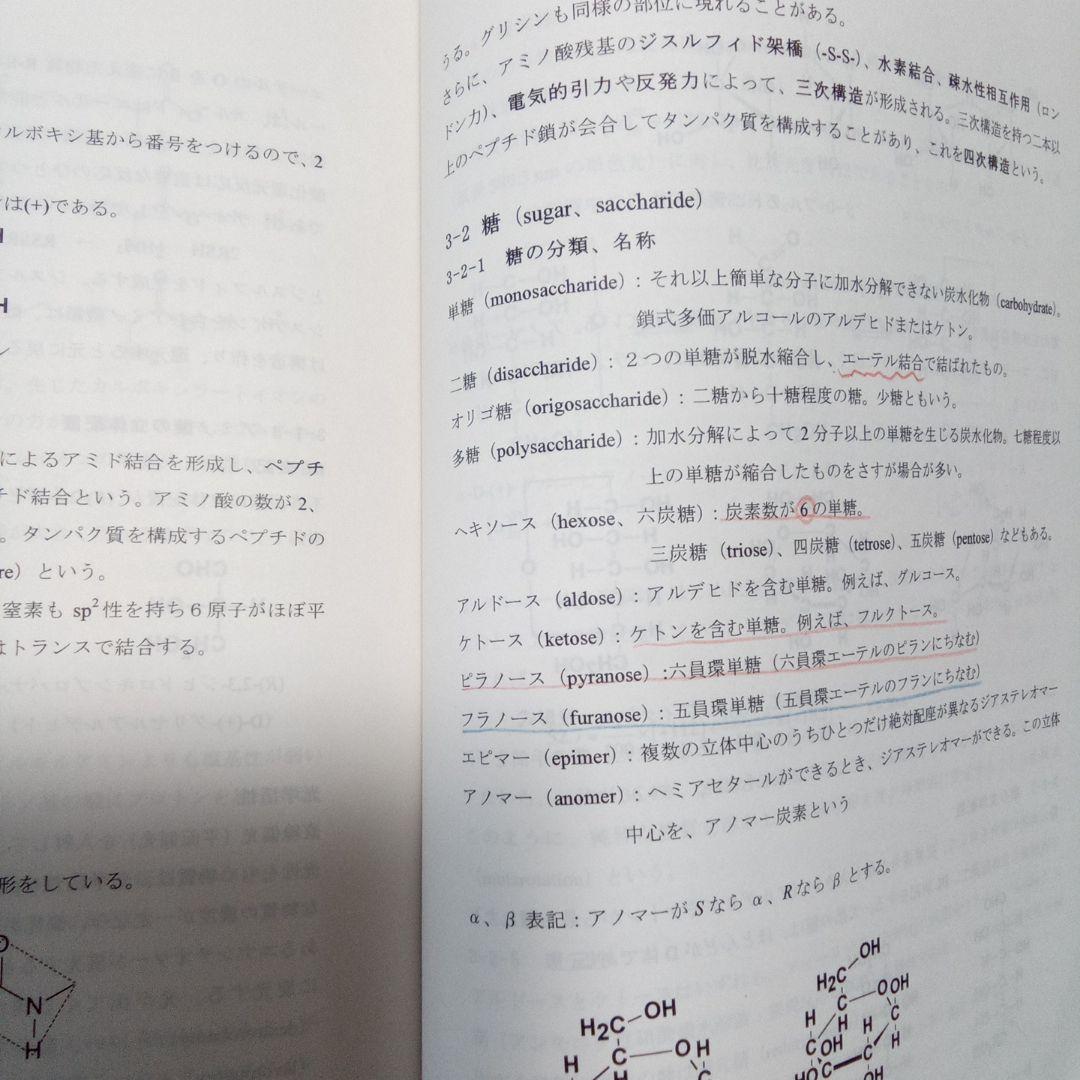 ルボキシ基から番号をつけるので、2
は(+)である。
H
H
によるアミド結合を形成し、ペプチ
チド結合という。アミノ酸の数が2、
。タンパク質を構成するペプチドの
re）という。
窒素も sp²性を持ち６原子がほぼ平
はトランスで結合する。
形をしている。
O
N
H
うる。グリシンも同様の部位に現れることがある。
さらに、アミノ酸残基のジスルフィド架橋（-S-S-）、水素結合、疎水性相互作用（ロン
ドン力）、電気的引力や反発力によって、三次構造が形成される。三次構造を持つ二本以
上のペプチド鎖が会合してタンパク質を構成することがあり、これを四次構造という。
3-2 糖（sugar、saccharide）
3-2-1 糖の分類、名称
単糖（monosaccharide）：それ以上簡単な分子に加水分解できない炭水化物（carbohydrate）。
鎖式多価アルコールのアルデヒドまたはケトン。
二糖（disaccharide）：２つの単糖が脱水縮合し、エーテル結合で結ばれたもの。
オリゴ糖（origosaccharide）：二糖から十糖程度の糖。少糖ともいう。
多糖（polysaccharide）：加水分解によって2分子以上の単糖を生じる炭水化物。七糖程度以
上の単糖が縮合したものをさすが場合が多い。
ヘキソース（hexose、六炭糖）：炭素数が6の単糖。
三炭糖（triose）、四炭糖（tetrose）、五炭糖（pentose）などもある。
アルドース（aldose）：アルデヒドを含む単糖。例えば、グルコース。
ケトース（ketose）：ケトンを含む単糖。例えば、フルクトース。
ピラノース（pyranose）:六員環単糖（六員環エーテルのピランにちなむ）
フラノース（furanose）：五員環単糖（五員環エーテルのフランにちなむ）
エピマー（epimer）：複数の立体中心のうちひとつだけ絶対配座が異なるジアステレオマー
アノマー（anomer）：ヘミアセタールができるとき、ジアステレオマーができる。この立体
中心を、アノマー炭素という
α、β 表記：アノマーが S なら α、R なら β とする。
OH
H₂C
OOH
C
H
H
H
C
C
OH
C
H
HO
C
OH
OH
H₂C
C
OH
H
C
H
C